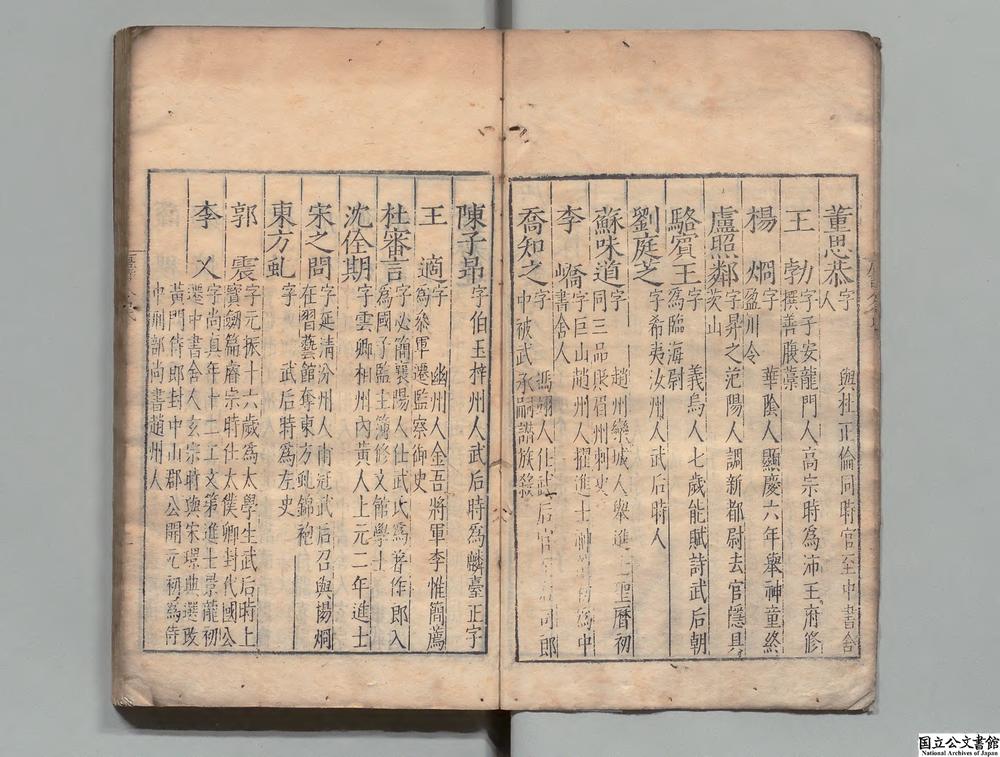 董思恭 字 與杜正倫同時官至中書舍
人
王勃 字子安龍門人高宗時為沛王府修
撰善腹藁
楊炯 字 華陰人顯慶六年舉神童終
盈川令
盧照鄰 字昇之范陽人調新都尉去官隱具
茨山
駱賓王 字 義烏人七歲能賦詩武后朝
為臨海尉
劉庭芝 字希夷汝州人武后時人
蘇味道 字 趙州欒城人舉進士聖曆初
同三品貶眉州刺史
李嶠 字巨山趙州人擢進士神龍初為中
書舍人
喬知之 字 馮翊人仕武后官 司郎
中被武承嗣譖族殺
陳子昂 字伯玉梓州人武后時為麟臺正字
王適 字 幽州人金吾將軍李惟簡薦
為參軍遷監察御史
杜審言 字必簡襄陽人仕武氏為著作郎入
為國子監主簿修文館學士
沈佺期 字雲卿相州內黃人上元二年進士
宋之問 字延清汾州人甫冠武后召與楊炯
在習藝館奪東方虬錦袍
東方虬 字 武后時為左史
郭震 字元振十六歲為太學生武后時上
寶劍篇睿宗時仕太僕卿封代國公
李乂 字尚真年十二工文第進士景龍初
遷中書舍人玄宗時與宋璟典選改
黃門侍郎封中山郡公開元初為侍
中刑部尚書趙州人
国立公文書館
National Archives of Japan